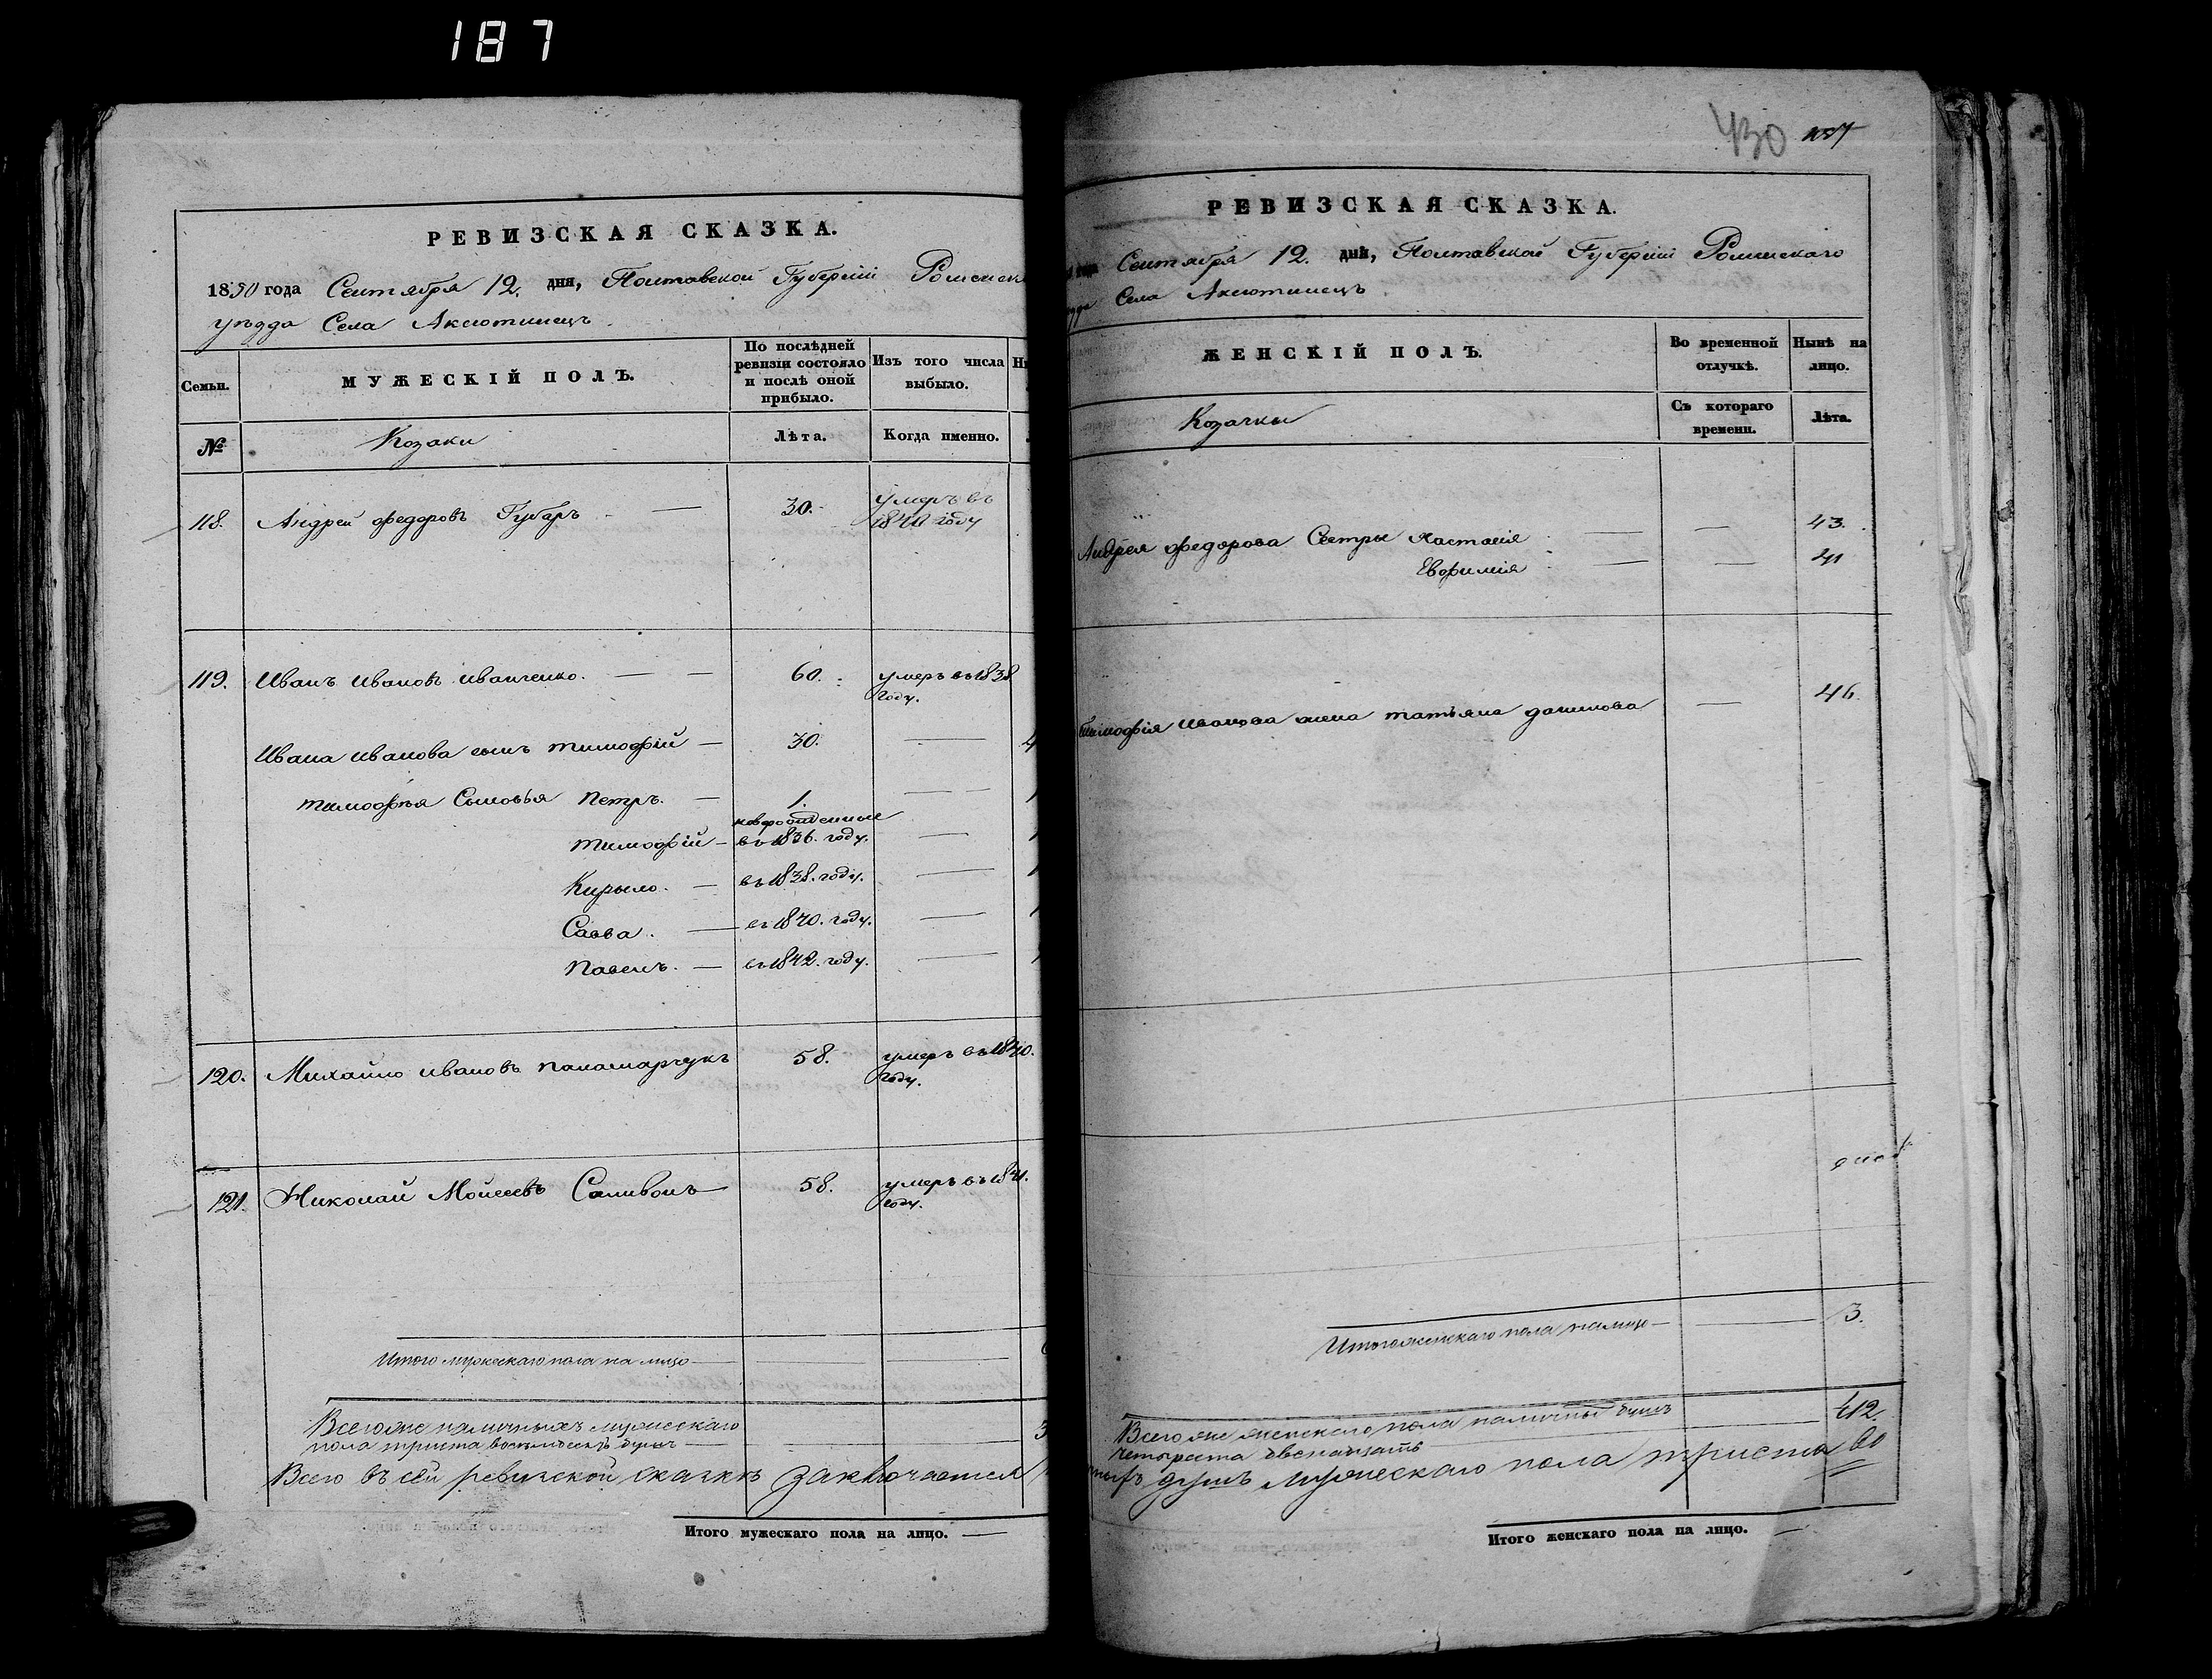 187
РЕВИЗСКАЯ СКАЗКА.
1850 года Сентября 12. дня, Полтавской Губернiи Роменск
уѣзда Села Аксютинецъ.
Семьи.
МУЖЕСКIЙ ПОЛЪ.
По послѣдней
ревизiи состояло
и послѣ оной
прибыло.
Изъ того числа
выбыло.
№
Козаки
Лѣта.
Когда именно.
118. Андрей Федоровъ Губарь 30. умеръ въ
1840 году
119. Иванъ Ивановъ Иванченко. 60. умеръ въ 1838
году.
Ивана Иванова сынъ Тимофiй 30.
Тимофѣя Сыновья Петръ. 1.
новорожденные
Тимофiй въ 1836. году.
Кирыло. въ 1838. году.
Савва. въ 1840. году.
Павелъ. въ 1842. году.
120. Михайло Ивановъ Панамарчукъ 58. умеръ въ 1840.
году.
121. Николай Мойсеевъ Саливонъ 58. умеръ въ 1841.
году.
Итого мужескаго пола на лицо
Всего же наличныхъ мужескаго
пола триста восемьдесятъ душъ
Всего въ сей ревизской сказкѣ заключается
Итого мужескаго пола на лицо. —
430 187
РЕВИЗСКАЯ СКАЗКА.
года Сентября 12. дня, Полтавской Губернiи Роменскаго
Села Аксютинецъ.
ЖЕНСКIЙ ПОЛЪ.
Во временной
отлучкѣ.
Нынѣ на
лицо.
Козачки
Съ котораго
времени.
Лѣта.
Андрея Федорова Сестры Настасiя 43.
Евфимiя 41
Тимофiя Иванова жена Татьяна Данилова 46.
Итого женскаго пола на лицо 3.
Всего же женскаго пола наличныхъ душъ 412.
четыреста двенацать
душъ мужескаго пола триста во
Итого женскаго пола на лицо. —